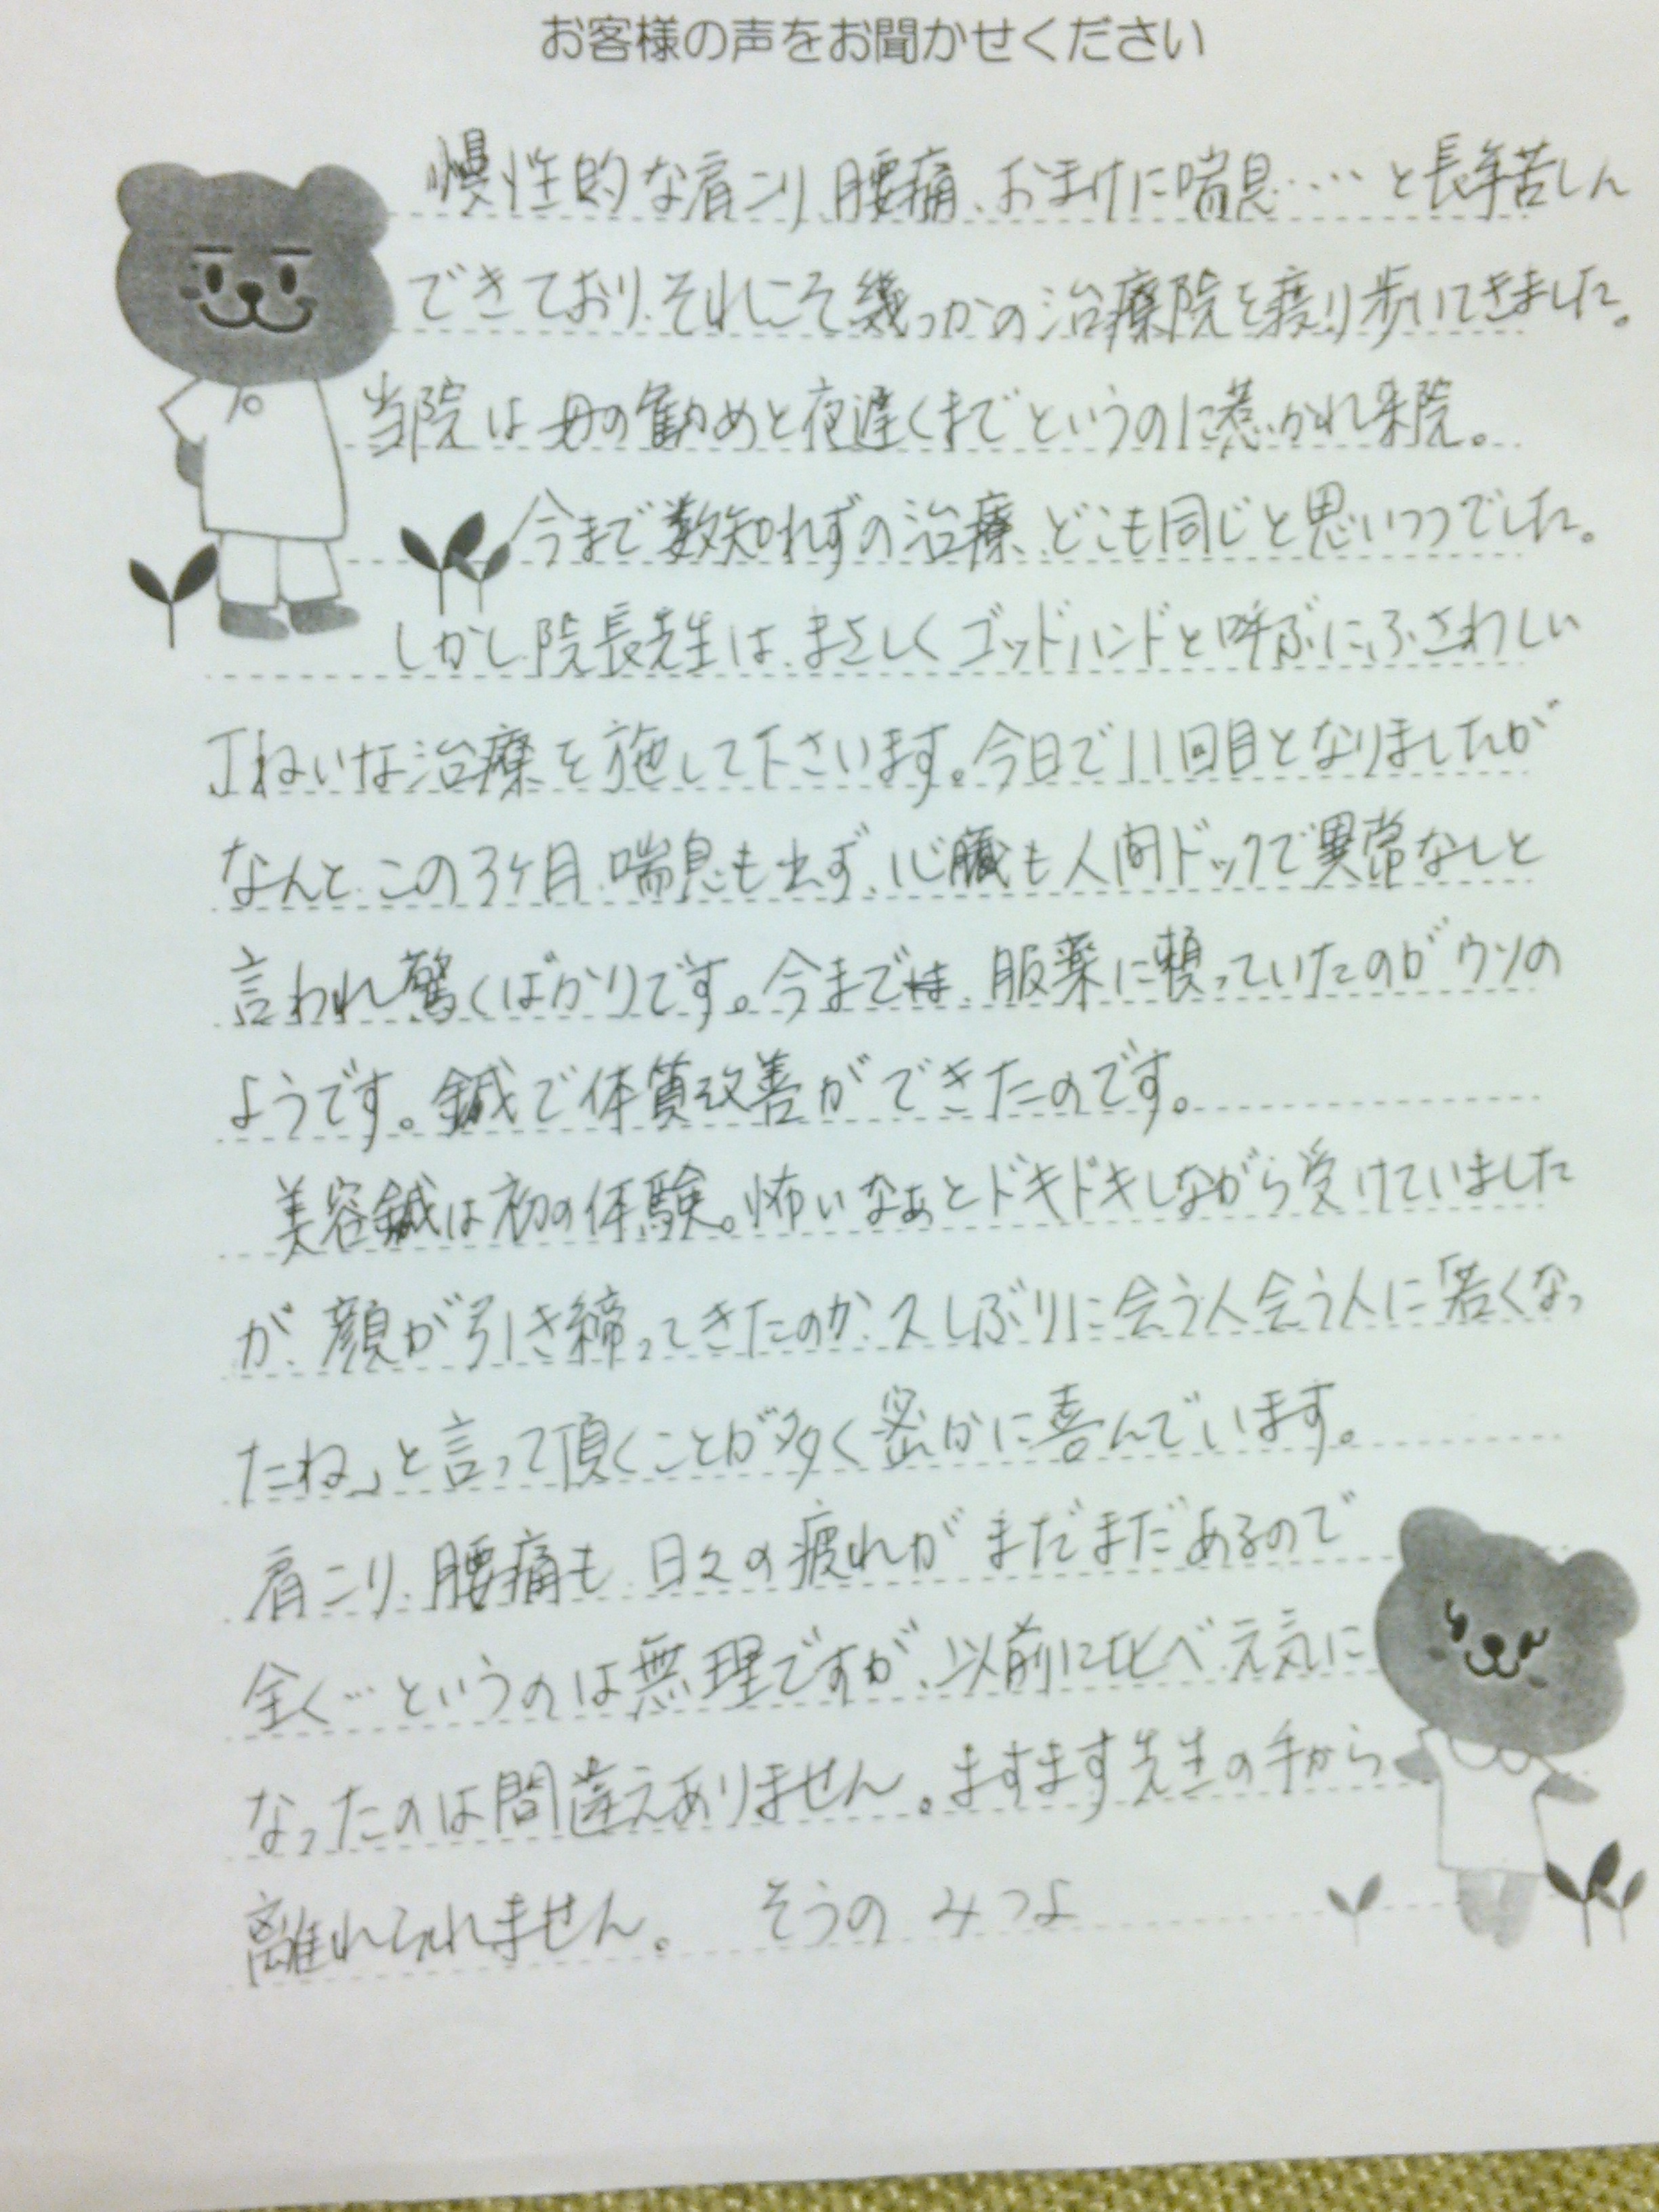 お客様の声をお聞かせください
慢性的な肩こり、腰痛、おまけに喘息……と長年苦しん
できており、それこそ幾つかの治療院を渡り歩いてきました。
当院は母の勧めと夜遅くまでというのに惹かれ来院。
今まで数知れずの治療、どこも同じと思いつつでした。
しかし、院長先生は、まさしくゴッドハンドと呼ぶにふさわしい
丁ねいな治療を施して下さいます。今日で11回目となりましたが
なんと、この3ヶ月、喘息も出ず、心臓も人間ドックで異常なしと
言われ驚くばかりです。今までは、服薬に頼っていたのがウソの
ようです。鍼で体質改善ができたのです。
美容鍼は初の体験。怖いなぁとドキドキしながら受けていました
が、顔が引き締ってきたのか、久しぶりに会う人会う人に「若くなっ
たね」と言って頂くことが多く密かに喜んでいます。
肩こり、腰痛も、日々の疲れがまだまだあるので
全く…というのは無理ですが、以前に比べ元気に
なったのは間違えありません。ますます先生の手から
離れられません。 そうの みつよ